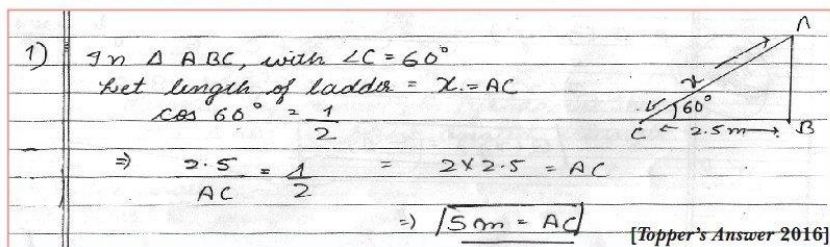 1) In Δ ABC, with ∠C = 60°
Let length of ladder = x = AC
cos 60° = 1/2
⇒ 2.5/AC = 1/2 = 2×2.5 = AC
⇒ 5m = AC
A
x
60°
C ← 2.5m → B
[Topper's Answer 2016]